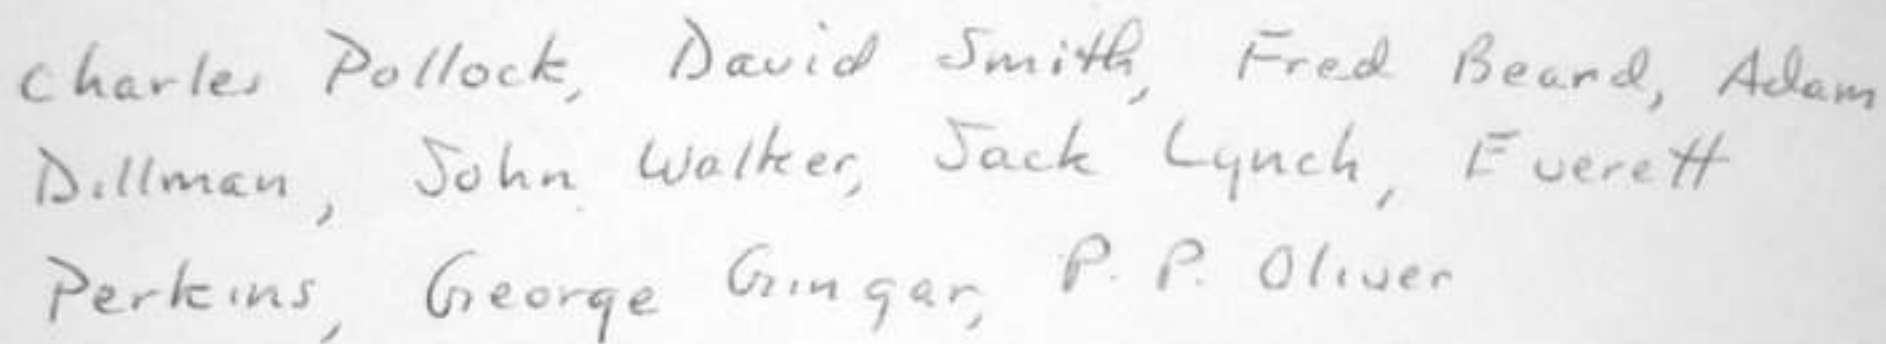 Charles Pollock, David Smith, Fred Beard, Adam
Dillman, John Walker, Jack Lynch, Everett
Perkins, George Gingar, P. P. Oliver